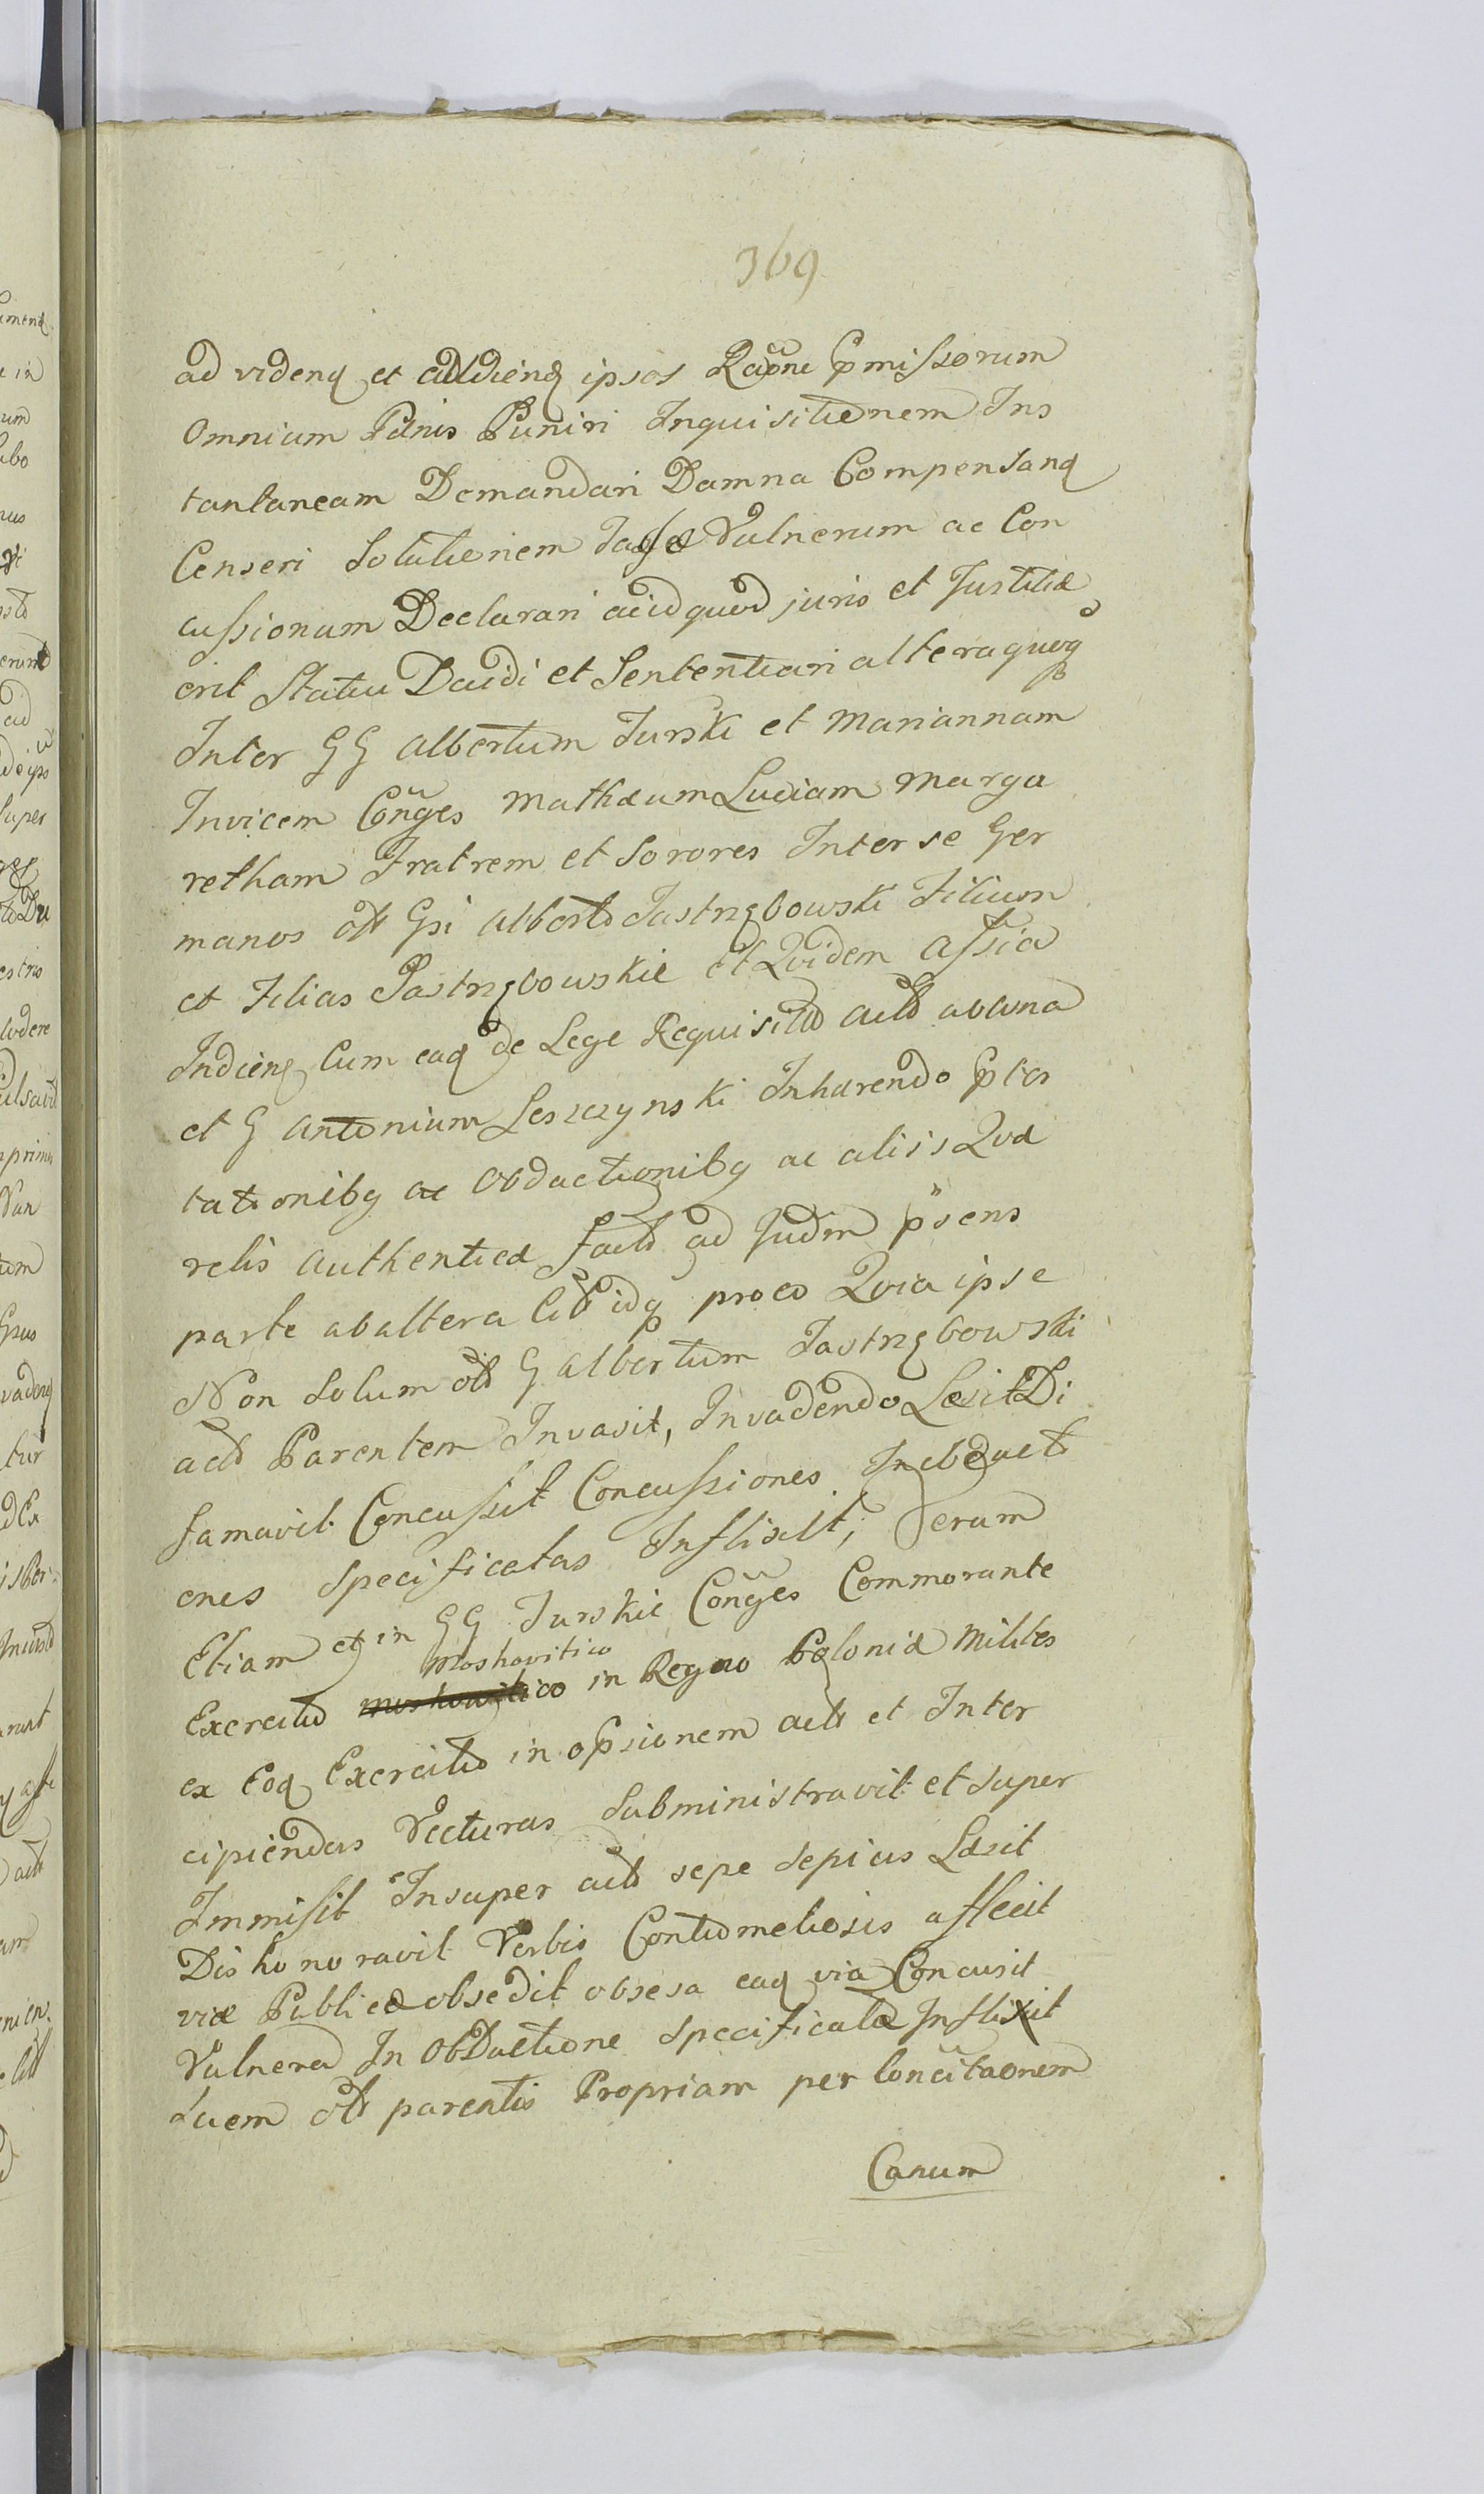 369
ad videnq et audienq ipsos Raõne Pmissorum
omnium Pœnis Puniri Inquisitionem Ins
tantaneam Demandari Damna Compensanq
Censeri Solutionem Taxæ Vulnerum ac Con
cussionum Declarari acidquod juris et Justitiæ
erit Statui Decidi et Sententiari altera quoq
Inter GG Albertum Turski et Mariannam
Invicem Cõnges Mathæum Luciam Marga
retham Fratrem et Sorores Inter se Ger
manos olt Gsi Alberti Jastrzębowski Filium
et Filias Jastrzębowskie et Quidem
Indienq Cum eaq de Lege Requisito actt abuna
et G Antonium Leszczynski Inhærendo Ptes
tationibq ac Obductionibq ac aliis Quæ
relis Authenticæ factt ad Judm psens
parte abaltera Citt idq pro eo Quia ipse
Non Solum olt G Albertum Jastrzębowski
actt Parentem Invasit, Invadendo Lesit Di
famavit Concussit Concussiones In obducti
ones Specificatas Inflixit; Verum
Etiam et in GG Turskie Cõnges Commorante
Moskovitico
Exercitu in Regno Poloniæ Milites
ex Eoq Exercitu in opsionem actt et Inter
cipiendas Vecturas Subministravit et Super
Immisit Insuper actt sepe sepius Læsit
Dishonoravit Verbis Contumeliosis affecit
viæ Publicæ obsedit obsesa eaq via Concusit
Vulnera In Obductione Specificata Inflixit
Suem olt parentis Propriam per Concitaonem
Canum